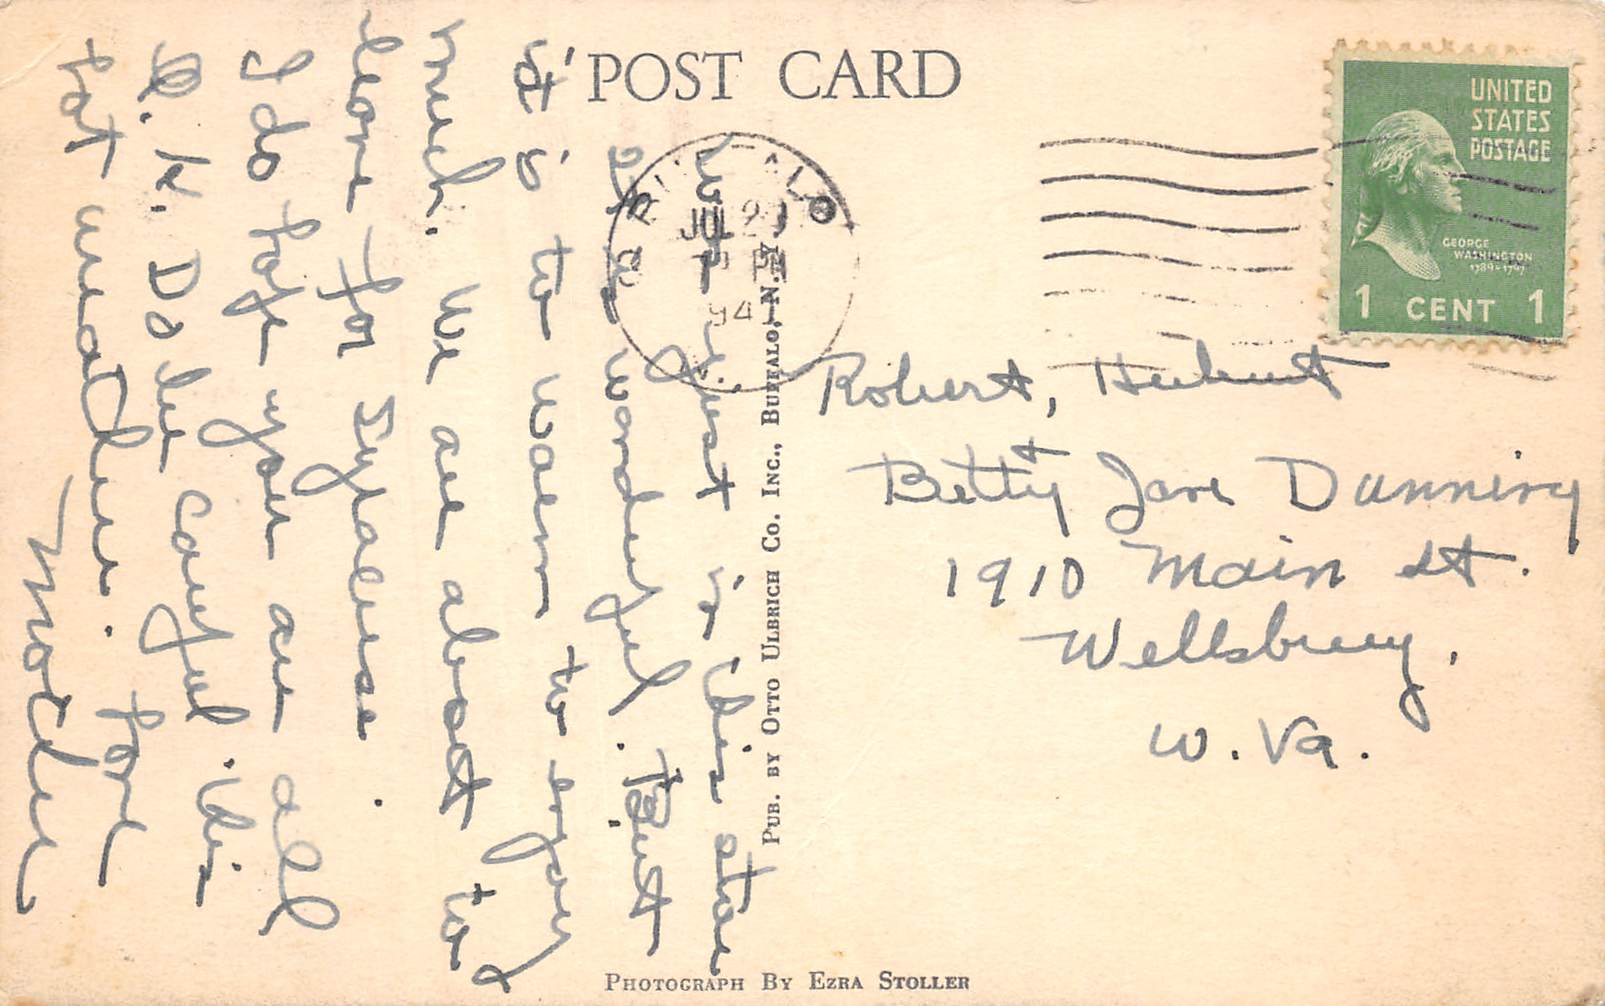 POST CARD
UNITED
STATES
POSTAGE
GEORGE
WASHINGTON
1789-1797
1 CENT 1
JUL 29
94
N.Y.
Was just in this store
It is wonderful. But
it is to warm to enjoy
much. We are about to
leave for Syracuse.
I do hope you are all
O.K. Do be careful this
hot weather. Love
Mother
Robert, Hubert
Betty Jane Dunning
1910 Main St.
Wellsburg,
W. Va.
PUB. BY OTTO ULBRICH CO. INC., BUFFALO, N. Y.
PHOTOGRAPH BY EZRA STOLLER